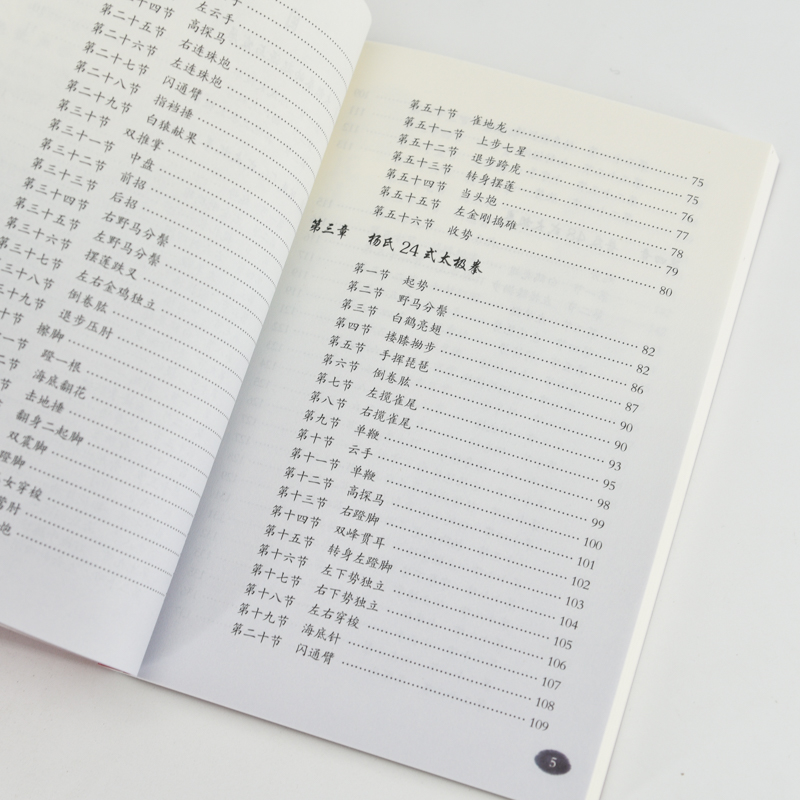 手
左云手
十四节 高探马
第二十五节 右连珠炮
第二十六节 左连珠炮
第二十七节 闪通臂
第二十八节 指裆捶
第二十九节 白猿献果
第三十节 双推掌
第三十一节 中盘
第三十二节 前招
第三十三节 后招
第三十四节 右野马分鬃
第三十五节 左野马分鬃
摆莲跌叉
第三十七节 左右金鸡独立
三十八节 倒卷肱
三十九节 退步压肘
十节 擦脚
一节 蹬一根
二节 海底翻花
节 击地捶
翻身二起脚
双震脚
蹬脚
女穿梭
鸾肘
炮
第五十节 雀地龙 75
第五十一节 上步七星 75
第五十二节 退步跨虎 76
第五十三节 转身摆莲 77
第五十四节 当头炮 78
第五十五节 左金刚捣碓 79
第五十六节 收势 80
第三章 杨氏24式太极拳
第一节 起势 82
第二节 野马分鬃 82
第三节 白鹤亮翅 86
第四节 搂膝拗步 87
第五节 手挥琵琶 90
第六节 倒卷肱 90
第七节 左揽雀尾 93
第八节 右揽雀尾 95
第九节 单鞭 98
第十节 云手 99
第十一节 单鞭 100
第十二节 高探马 101
第十三节 右蹬脚 102
第十四节 双峰贯耳 103
第十五节 转身左蹬脚 104
第十六节 左下势独立 105
第十七节 右下势独立 106
第十八节 左右穿梭 107
第十九节 海底针 108
第二十节 闪通臂 109
5